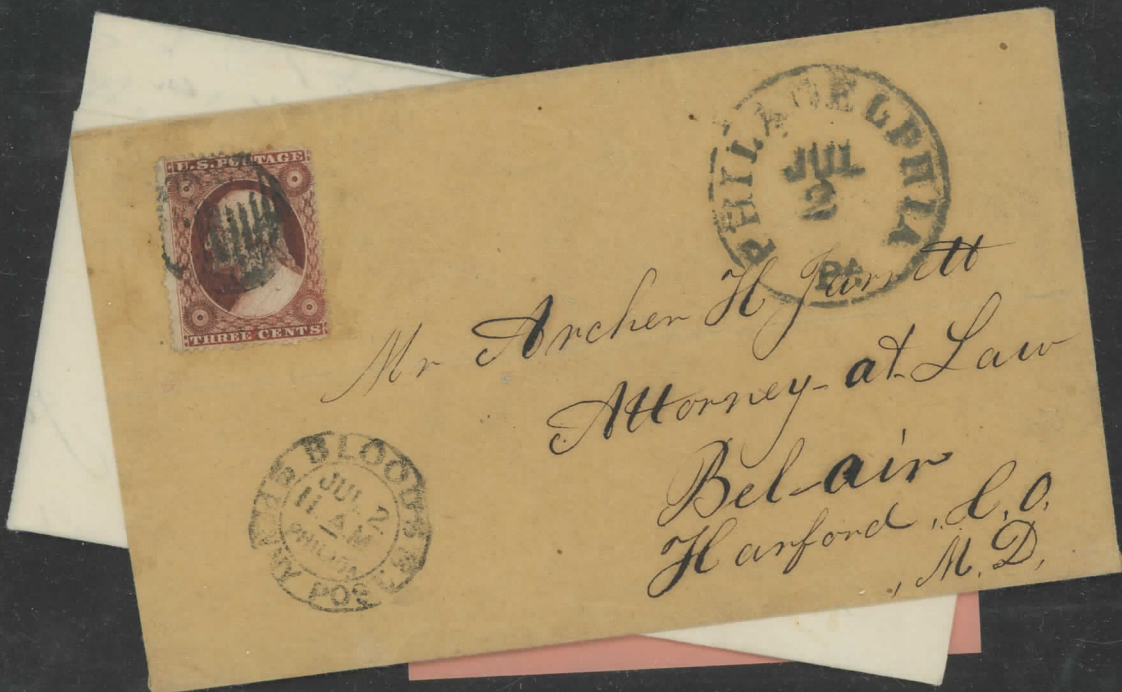 U.S. POSTAGE
THREE CENTS
PHILADELPHIA
JUL
2
PA
Mr Archer H Jarrett
Attorney-at-Law
Bel-air
Harford, C,O,
, M. D,
BLOOD'S
JUL 2
11 AM
PHILAD
POST